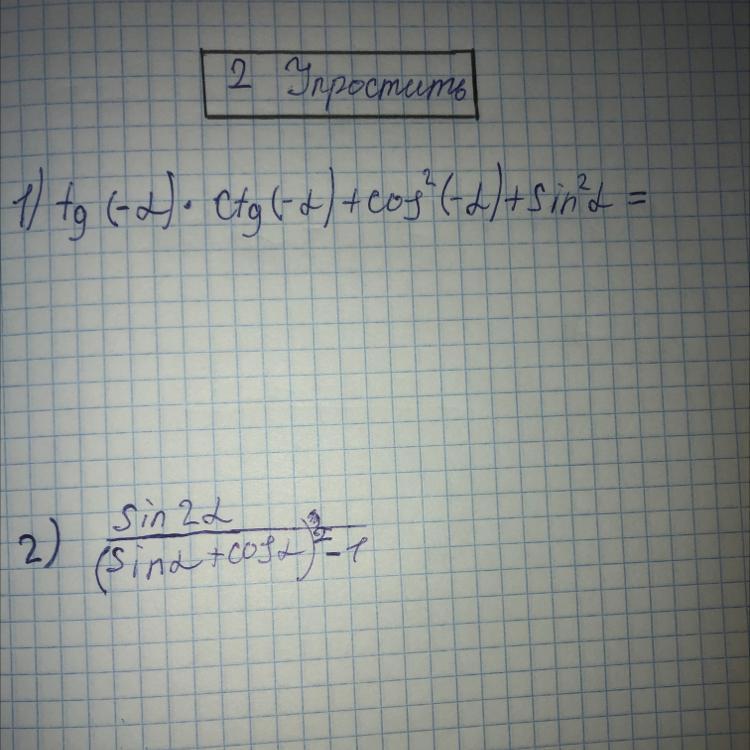 2 Упростить
1) tg (-α) · ctg (-α) + cos²(-α) + sin²α =
2) sin 2α
(sinα + cosα)² - 1